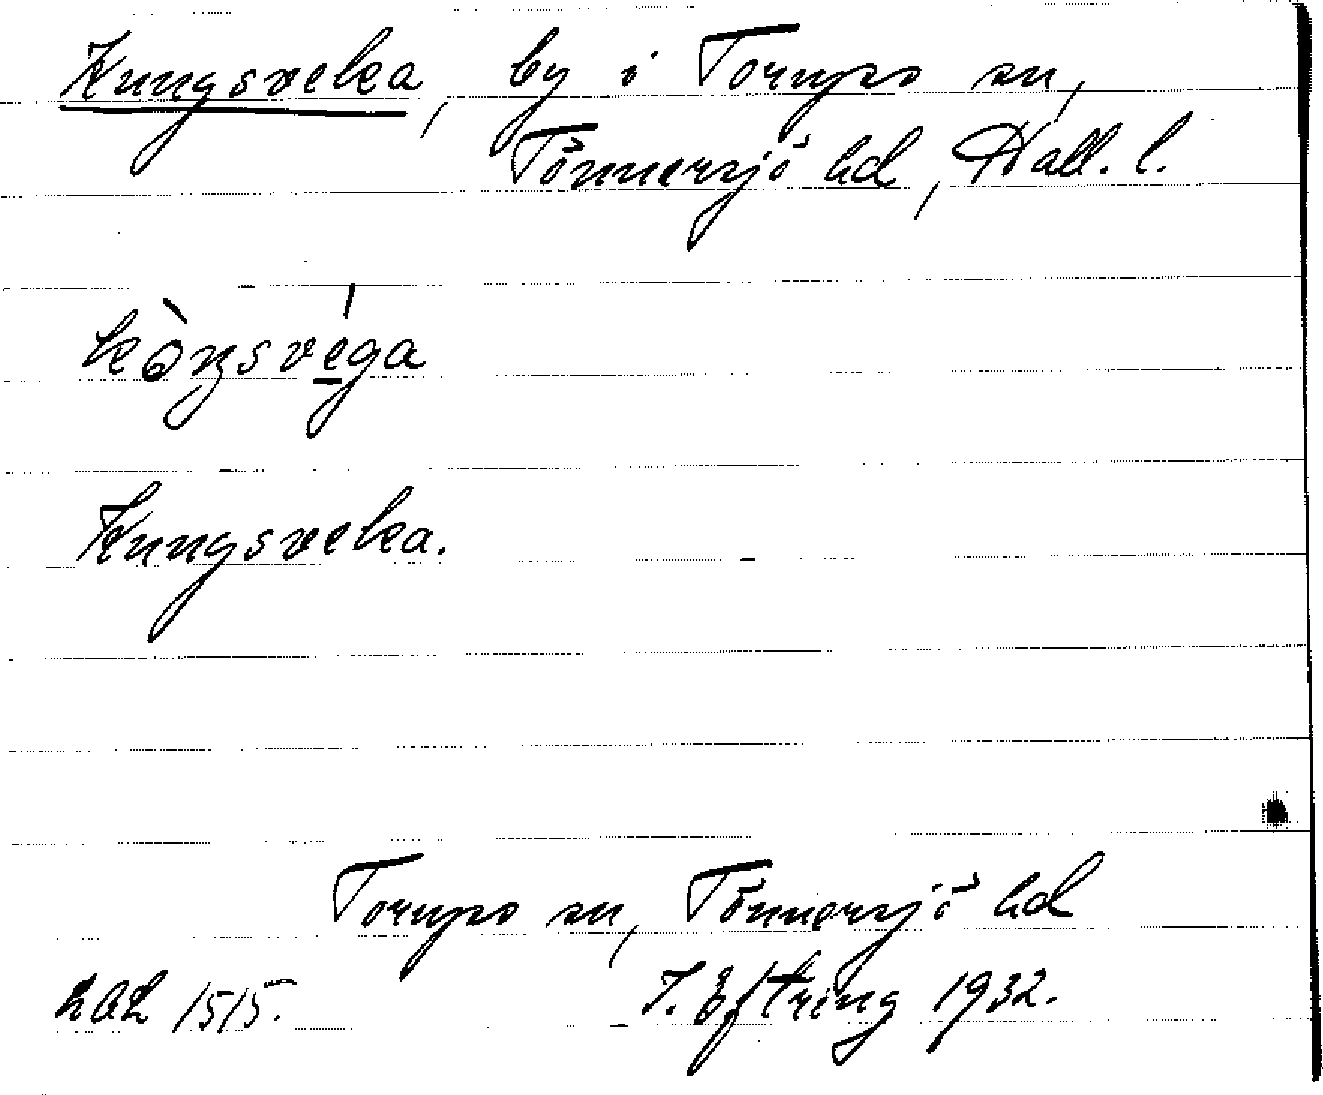 Kungsveka, by i Torups sn,
Tönnersjö hd, Hall. l.
kòŋsvega
Kungsveka.
Torups sn, Tönnersjö hd
LAL 1515. J. Eftring 1932.